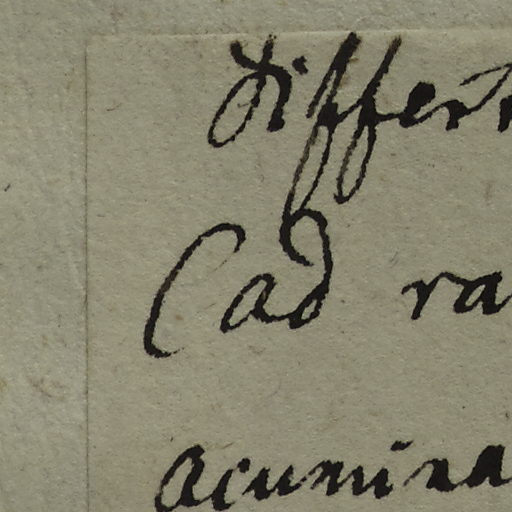 differt
(ad ra
acumina